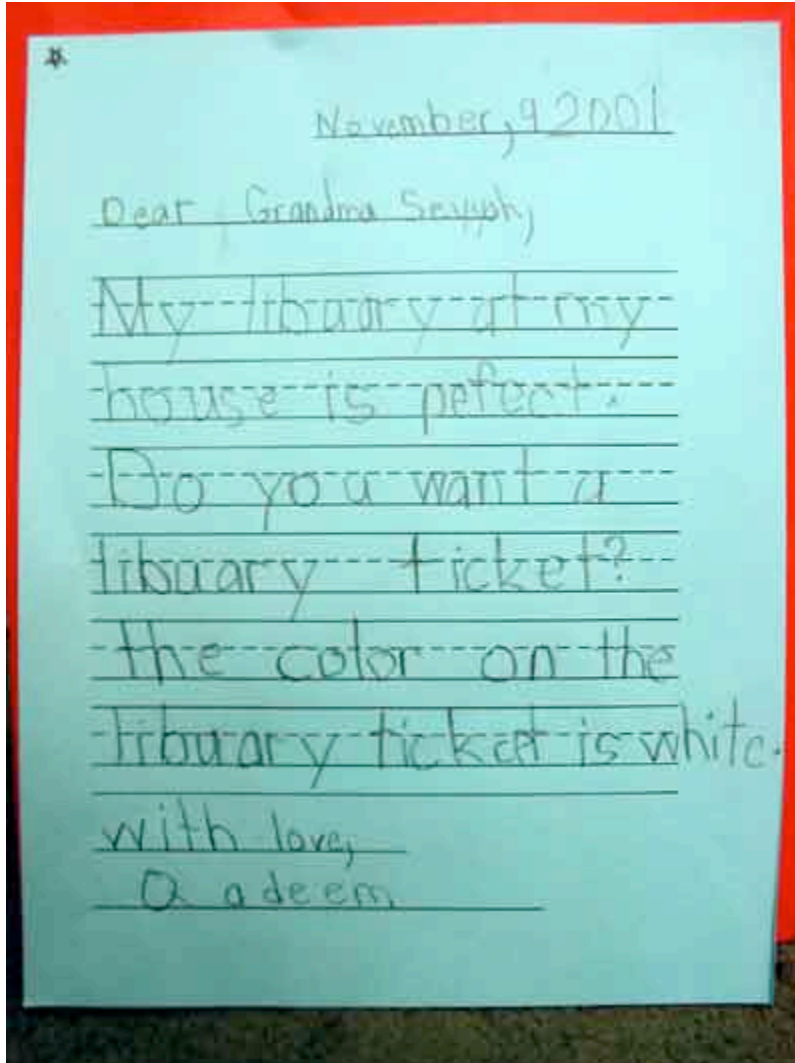 November, 9 2001
Dear Grandma Seyyah,
My libuary at my
house is pefect.
Do you want a
libuary ticket?
the color on the
libuary ticket is white.
with love,
Qadeem